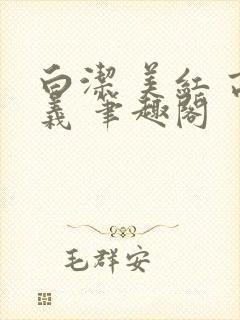 白潔 美紅 高
義 筆趣閣
毛群安